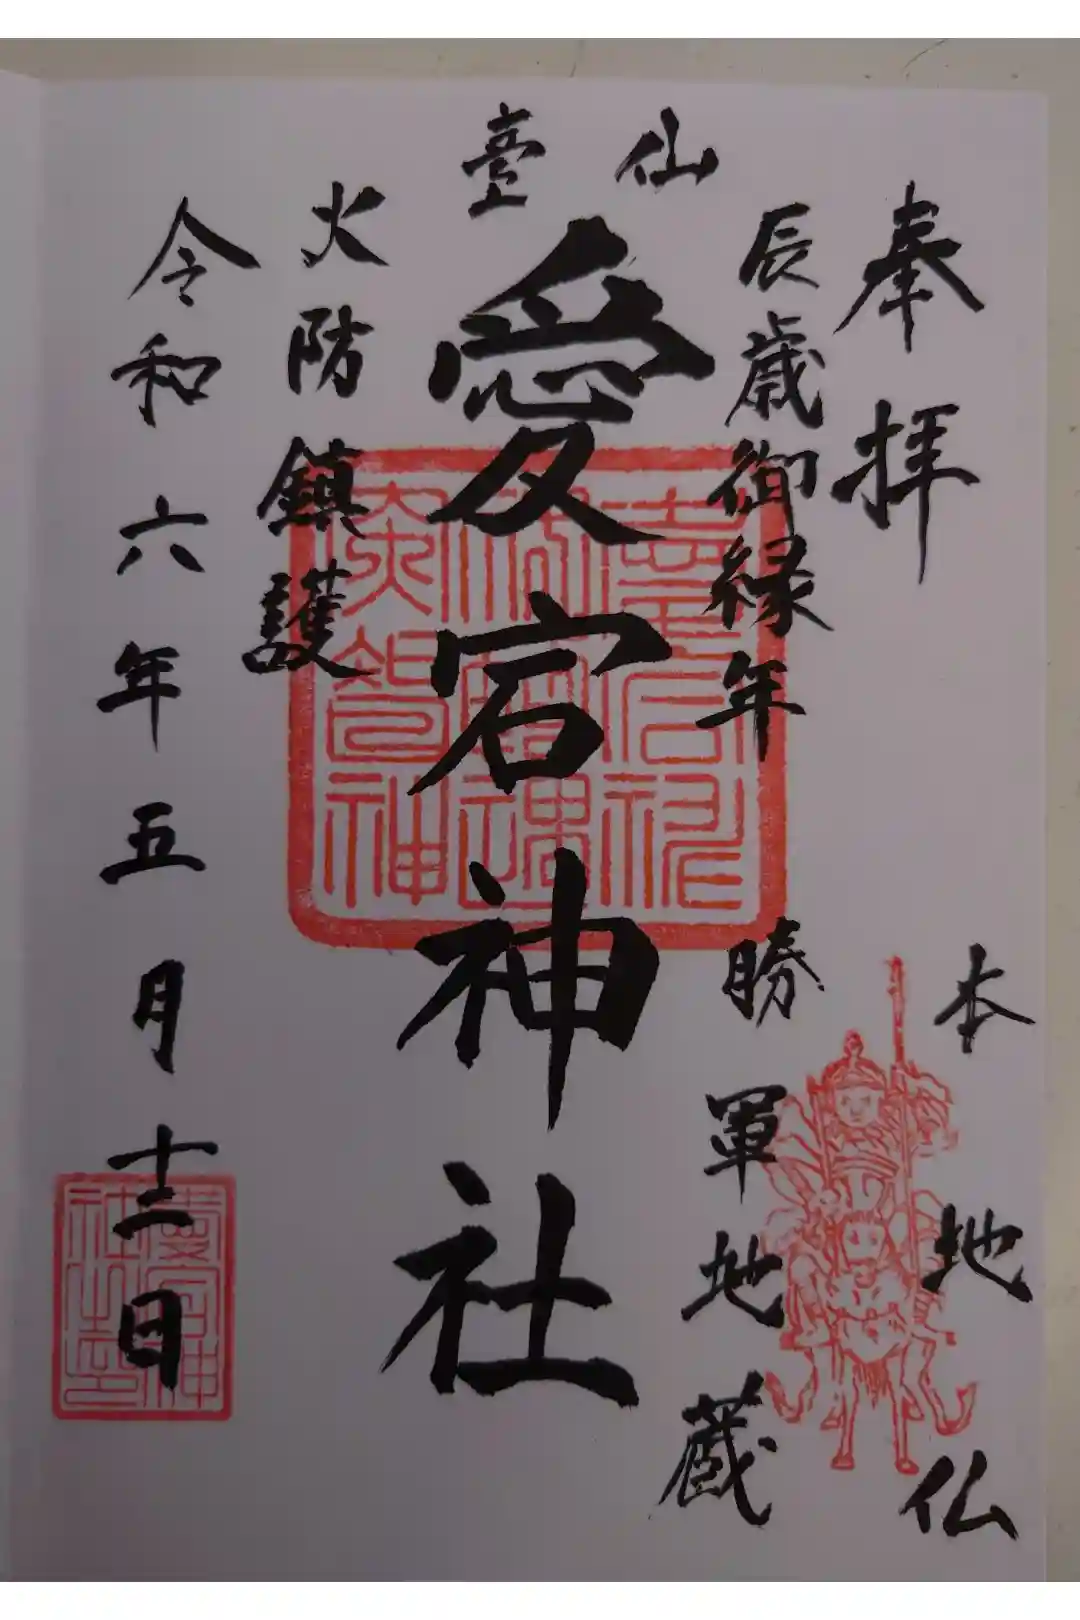 奉拝
本地仏
辰歳御縁年
勝軍地蔵
仙臺
愛宕神社
火防鎮護
令和六年五月十二日
愛宕神
社之印